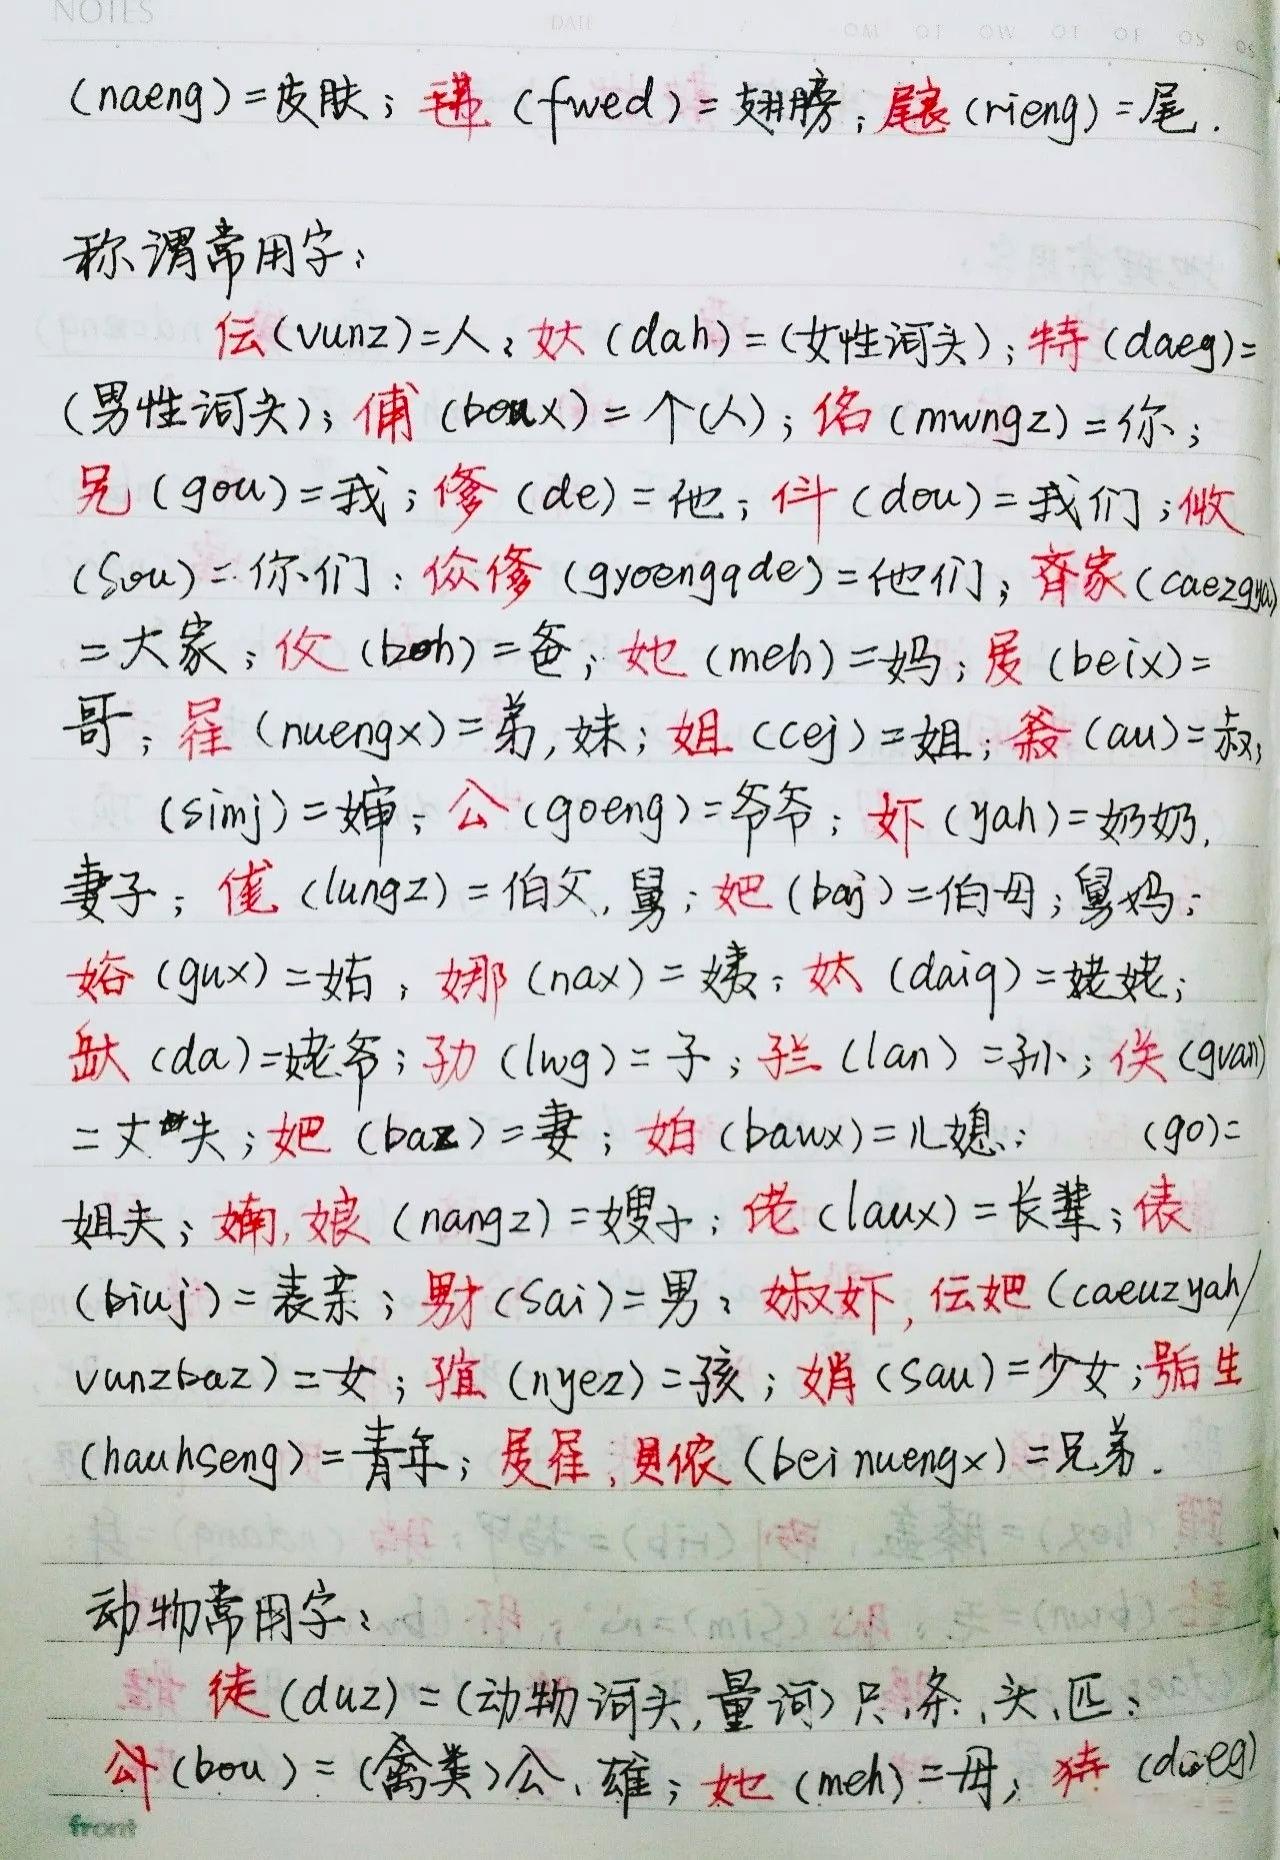 NOTES
DATE
(naeng)=皮肤; (fwed)=翅膀; (rieng)=尾.
称谓常用字:
伝(vunz)=人; 妖(dah)=(女性词头); 特(daeg)=
(男性词头); 俌(boux)=个(人); 佲(mwngz)=你;
兄(gou)=我; 偧(de)=他; 㪷(dou)=我们;
(Sou)=你们: 伩偧(gyoengqde)=他们; 齐家(caezgya)
=大家; 伩(boh)=爸; 她(meh)=妈; (beix)=
哥; (nuengx)=弟,妹; 姐(cej)=姐; (au)=叔;
(simj)=婶; 公(goeng)=爷爷; 妚(yah)=奶奶,
妻子; (lungz)=伯父,舅; 妑(baj)=伯母;舅妈;
(gux)=姑; 娜(nax)=姨; 妖(daiq)=姥姥;
(da)=姥爷; 劧(lwg)=子; (lan)=孙; 佚(gvan)
=丈夫; 妑(baz)=妻; 妱(bawx)=儿媳; (go)=
姐夫; 婻,娘(nangz)=嫂子; 佬(laux)=长辈; 俵
(biuj)=表亲; (Sai)=男; 婌妚,伝妑(caeuzyah/
vunzbaz)=女; (nyez)=孩; 娋(Sau)=少女; 生
(hauhseng)=青年; 侬(beinuengx)=兄弟.
动物常用字:
徒(duz)=(动物词头,量词)只、条、头、匹;
(bou)=(禽类)公、雄; 她(meh)=母; (daeg)
front